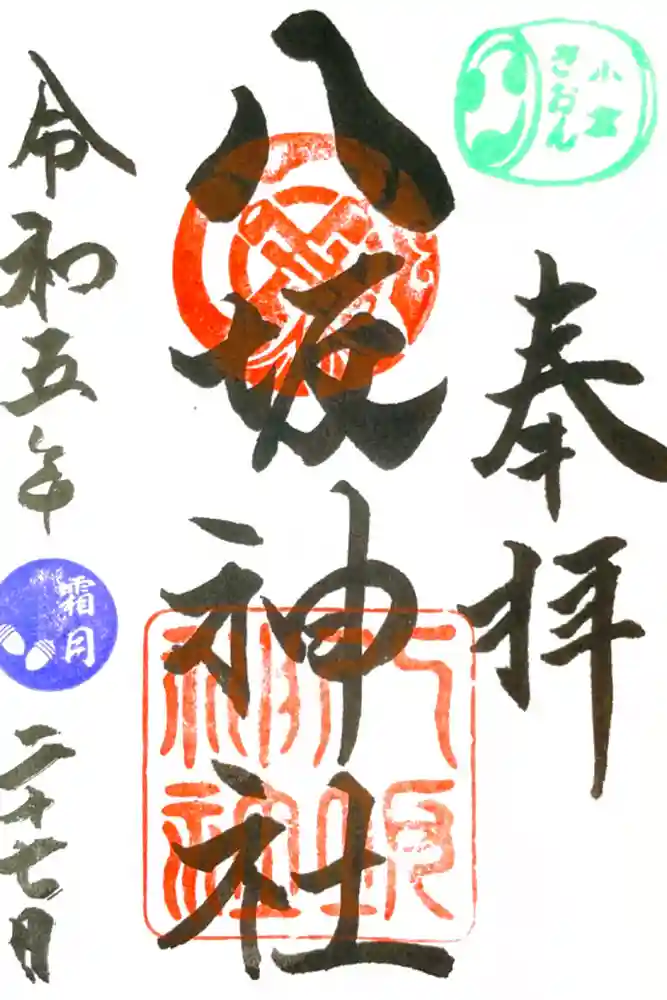 奉拝
小倉
ぎおん
八坂神社
八坂
神社
令和五年
霜月
二十七日